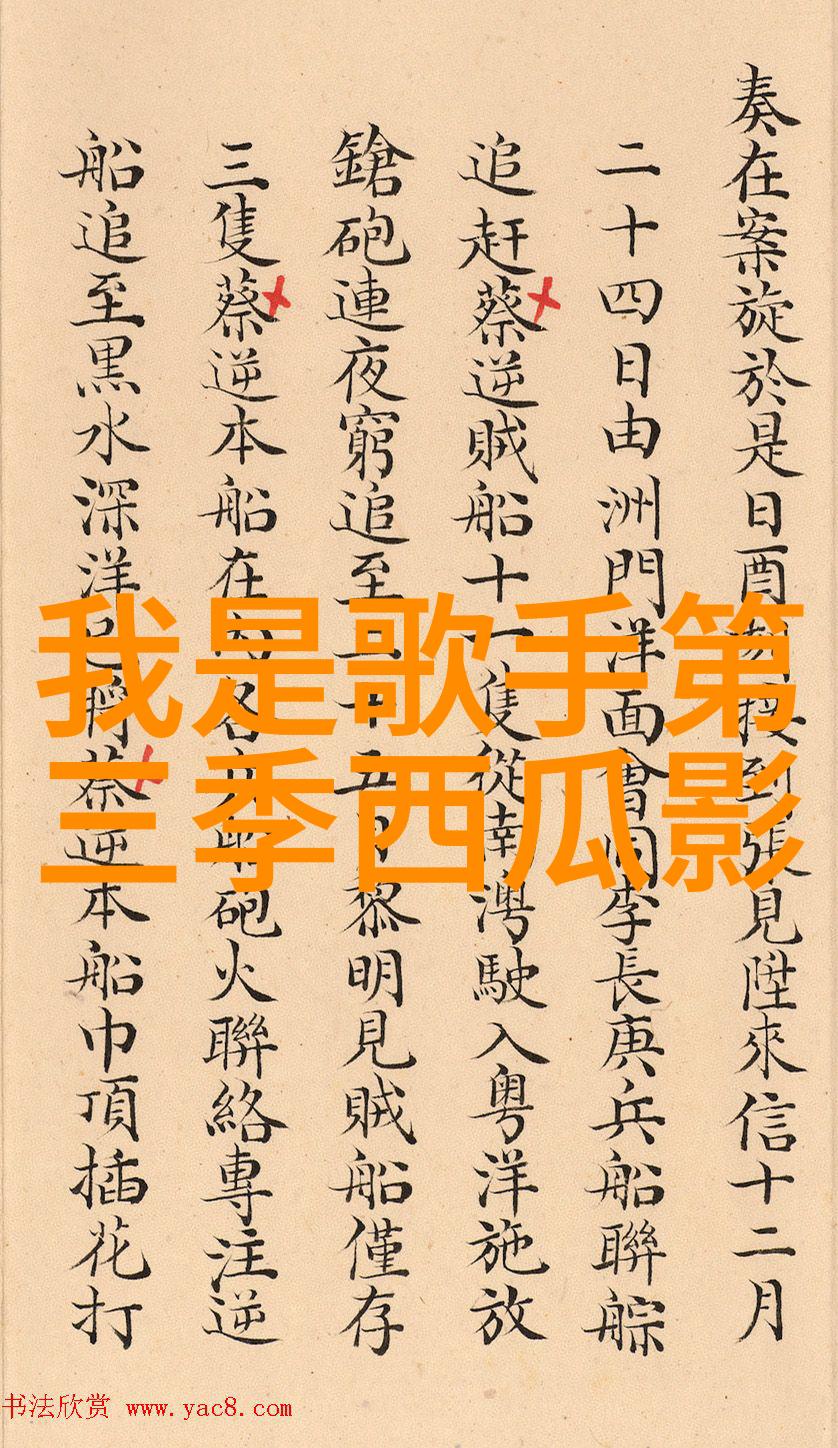 奏在案旋於是日酉刻接到張見陞來信十二月
二十四日由洲門洋面會同李長庚兵船聯䑸
追赶蔡逆賊船十一隻從南澳駛入粤洋施放
鎗砲連夜窮追至二十五日黎明見賊船僅存
三隻蔡逆本船在內各舟師砲火聯絡專注逆
船追至黒水深洋已將蔡逆本船巾頂插花打
我是歌手第
三季西瓜影
书法欣赏 www.yac8.com